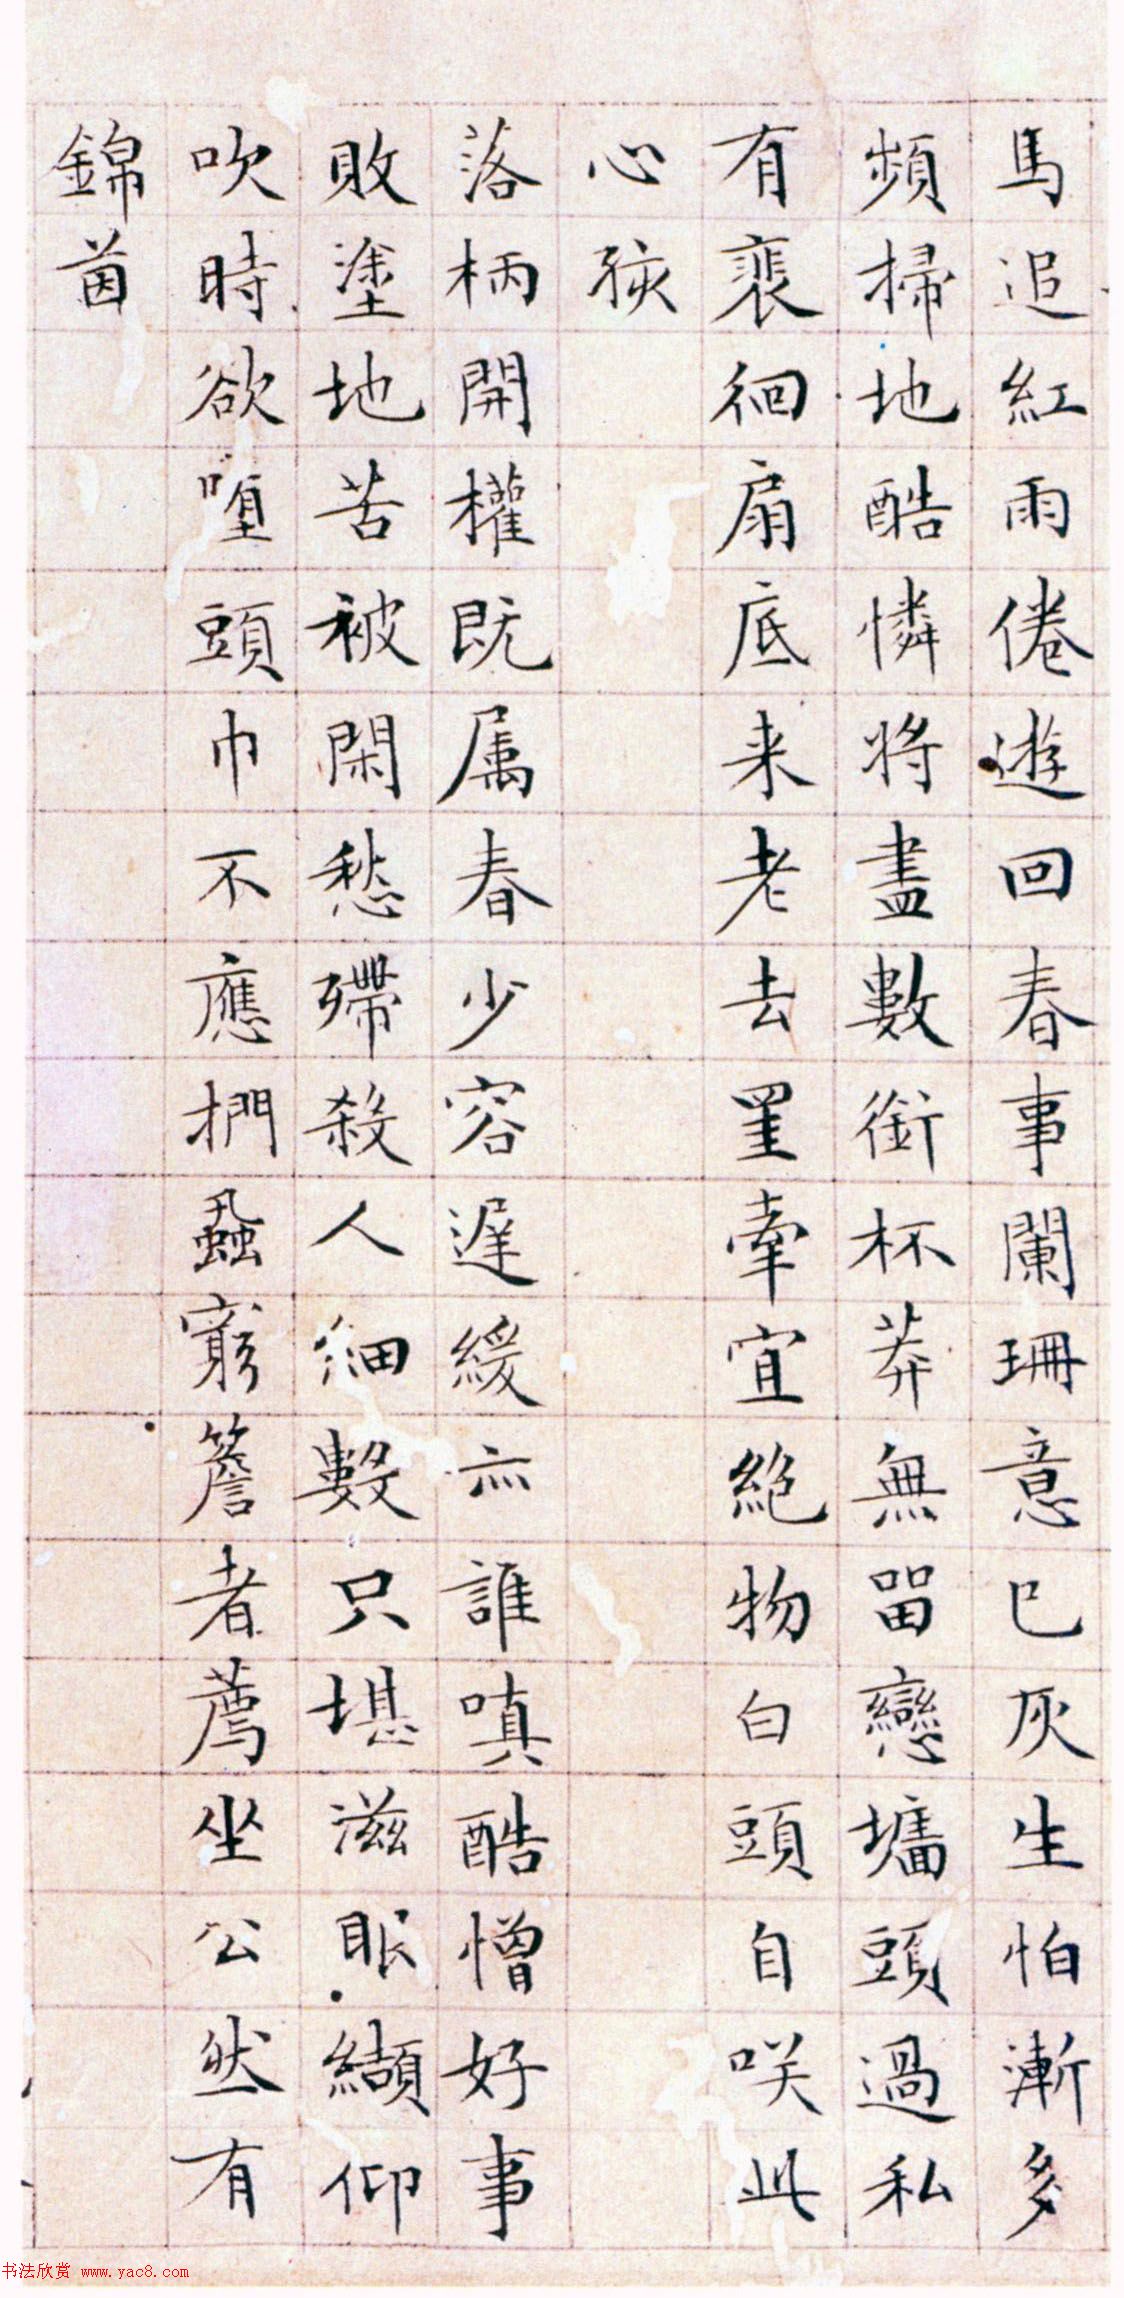 馬追紅雨倦遊回春事闌珊意已灰生怕漸多
頻掃地酷憐將盡數銜杯莽無留戀墻頭過私
有裴徊扇底来老去罣牽宜絕物白頭自咲此
心孩
落柄開權既属春少容遅緩亦誰嗔酷憎好事
敗塗地苦被閑愁殢殺人細數只堪滋眼纈仰
吹時欲堕頭巾不應捫蝨窮簷者薦坐公然有
錦茵
书法欣赏 www.yac8.com